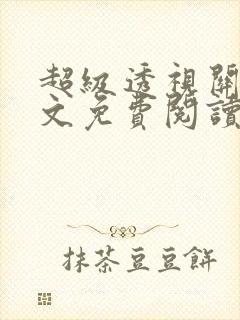 超級透視關
文免費閱讀
抹茶豆豆餅